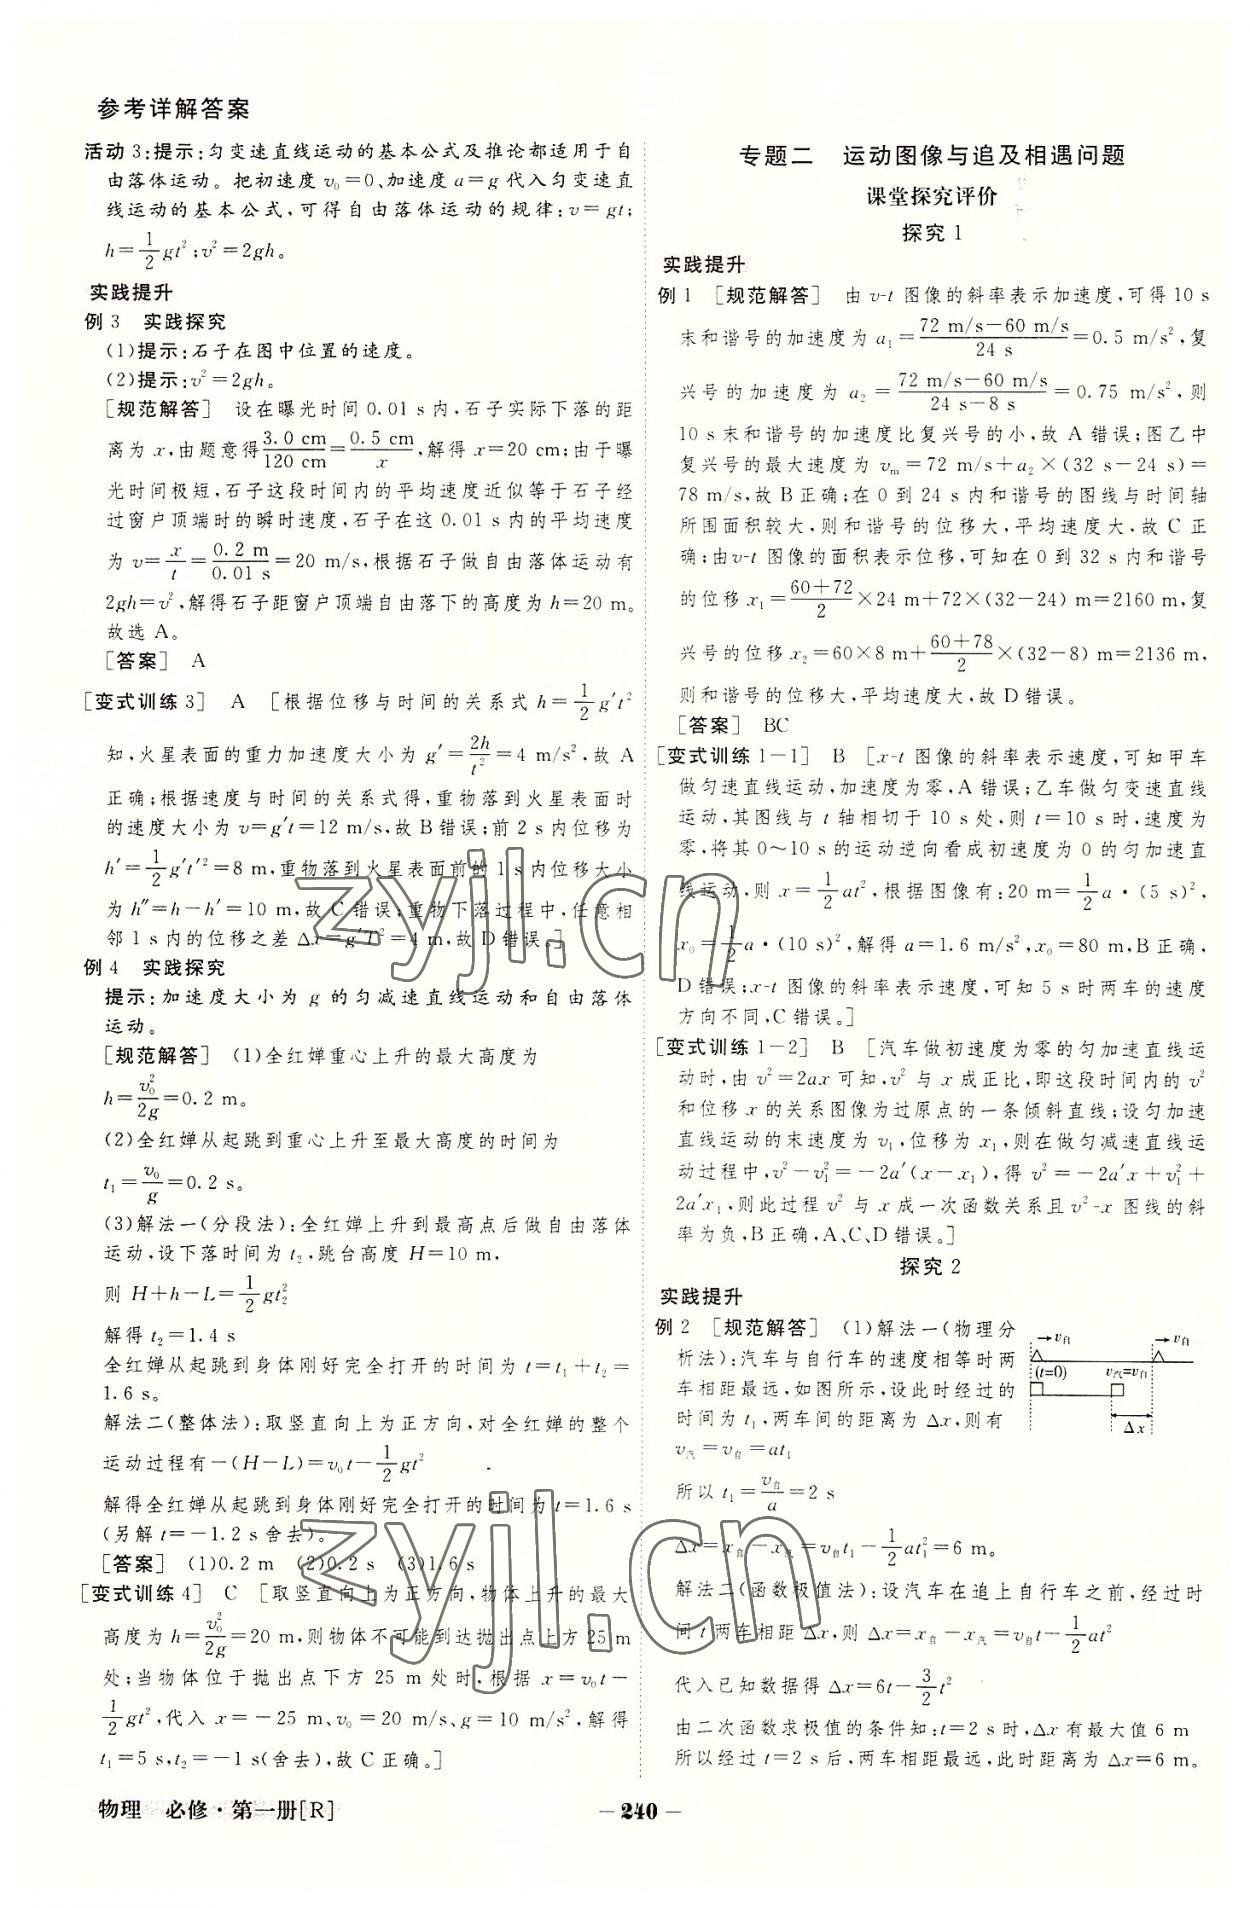 参考详解答案
活动3:提示:匀变速直线运动的基本公式及推论都适用于自
由落体运动。把初速度 v₀=0、加速度 a=g 代入匀变速直
线运动的基本公式,可得自由落体运动的规律:v=gt;
h=1/2 gt²;v²=2gh。
实践提升
例3 实践探究
(1)提示:石子在图中位置的速度。
(2)提示:v²=2gh。
[规范解答] 设在曝光时间0.01 s内,石子实际下落的距
离为 x,由题意得 3.0 cm/120 cm=0.5 cm/x,解得 x=20 cm;由于曝
光时间极短,石子这段时间内的平均速度近似等于石子经
过窗户顶端时的瞬时速度,石子在这0.01 s内的平均速度
为 v=x/t=0.2 m/0.01 s=20 m/s,根据石子做自由落体运动有
2gh=v²,解得石子距窗户顶端自由落下的高度为 h=20 m。
故选 A。
[答案] A
[变式训练3] A [根据位移与时间的关系式 h=1/2 g′t²
知,火星表面的重力加速度大小为 g′=2h/t²=4 m/s²,故 A
正确;根据速度与时间的关系式得,重物落到火星表面时
的速度大小为 v=g′t=12 m/s,故 B 错误;前 2 s 内位移为
h′=1/2 g′t′²=8 m,重物落到火星表面前的 1 s 内位移大小
为 h″=h-h′=10 m,故 C 错误;重物下落过程中,任意相
邻 1 s 内的位移之差 Δx=g′T²=4 m,故 D 错误。]
例4 实践探究
提示:加速度大小为 g 的匀减速直线运动和自由落体
运动。
[规范解答] (1)全红婵重心上升的最大高度为
h=v₀²/2g=0.2 m。
(2)全红婵从起跳到重心上升至最大高度的时间为
t₁=v₀/g=0.2 s。
(3)解法一(分段法):全红婵上升到最高点后做自由落体
运动,设下落时间为 t₂,跳台高度 H=10 m,
则 H+h-L=1/2 gt₂²
解得 t₂=1.4 s
全红婵从起跳到身体刚好完全打开的时间为 t=t₁+t₂=
1.6 s。
解法二(整体法):取竖直向上为正方向,对全红婵的整个
运动过程有-(H-L)=v₀t-1/2 gt²
解得全红婵从起跳到身体刚好完全打开的时间为 t=1.6 s
(另解 t=-1.2 s舍去)。
[答案] (1)0.2 m (2)0.2 s (3)1.6 s
[变式训练4] C [取竖直向上为正方向,物体上升的最大
高度为 h=v₀²/2g=20 m,则物体不可能到达抛出点上方 25 m
处;当物体位于抛出点下方 25 m 处时,根据 x=v₀t-
1/2 gt²,代入 x=-25 m、v₀=20 m/s、g=10 m/s²,解得
t₁=5 s,t₂=-1 s(舍去),故 C 正确。]
专题二 运动图像与追及相遇问题
课堂探究评价
探究1
实践提升
例1 [规范解答] 由 v-t 图像的斜率表示加速度,可得 10 s
末和谐号的加速度为 a₁=(72 m/s-60 m/s)/24 s=0.5 m/s²,复
兴号的加速度为 a₂=(72 m/s-60 m/s)/(24 s-8 s)=0.75 m/s²,则
10 s末和谐号的加速度比复兴号的小,故 A 错误;图乙中
复兴号的最大速度为 vₘ=72 m/s+a₂×(32 s-24 s)=
78 m/s,故 B 正确;在 0 到 24 s 内和谐号的图线与时间轴
所围面积较大,则和谐号的位移大,平均速度大,故 C 正
确;由v-t 图像的面积表示位移,可知在 0 到 32 s 内和谐号
的位移 x₁=(60+72)/2×24 m+72×(32-24) m=2160 m,复
兴号的位移 x₂=60×8 m+(60+78)/2×(32-8) m=2136 m,
则和谐号的位移大,平均速度大,故 D 错误。
[答案] BC
[变式训练1-1] B [x-t 图像的斜率表示速度,可知甲车
做匀速直线运动,加速度为零,A 错误;乙车做匀变速直线
运动,其图线与 t 轴相切于 10 s 处,则 t=10 s 时,速度为
零,将其 0~10 s 的运动逆向看成初速度为 0 的匀加速直
线运动,则 x=1/2 at²,根据图像有:20 m=1/2 a·(5 s)²,
x₀=1/2 a·(10 s)²,解得 a=1.6 m/s²,x₀=80 m,B正确,
D 错误;x-t 图像的斜率表示速度,可知 5 s 时两车的速度
方向不同,C 错误。]
[变式训练1-2] B [汽车做初速度为零的匀加速直线运
动时,由 v²=2ax 可知,v² 与 x 成正比,即这段时间内的 v²
和位移 x 的关系图像为过原点的一条倾斜直线;设匀加速
直线运动的末速度为 v₁,位移为 x₁,则在做匀减速直线运
动过程中,v²-v₁²=-2a′(x-x₁),得 v²=-2a′x+v₁²+
2a′x₁,则此过程 v² 与 x 成一次函数关系且 v²-x 图线的斜
率为负,B 正确,A、C、D 错误。]
探究2
实践提升
例2 [规范解答] (1)解法一(物理分
析法):汽车与自行车的速度相等时两
车相距最远,如图所示,设此时经过的
时间为 t₁,两车间的距离为 Δx,则有
v自 v自
(t=0) v汽=v自
Δx
v汽=v自=at₁
所以 t₁=v自/a=2 s
Δx=x自-x汽=v自t₁-1/2 at₁²=6 m。
解法二(函数极值法):设汽车在追上自行车之前,经过时
间 t 两车相距 Δx,则 Δx=x自-x汽=v自t-1/2 at²
代入已知数据得 Δx=6t-3/2 t²
由二次函数求极值的条件知:t=2 s时,Δx 有最大值 6 m
所以经过 t=2 s后,两车相距最远,此时距离为 Δx=6 m。
物理 必修·第一册[R]
- 240 -
zyjl.cn
zyjl.cn